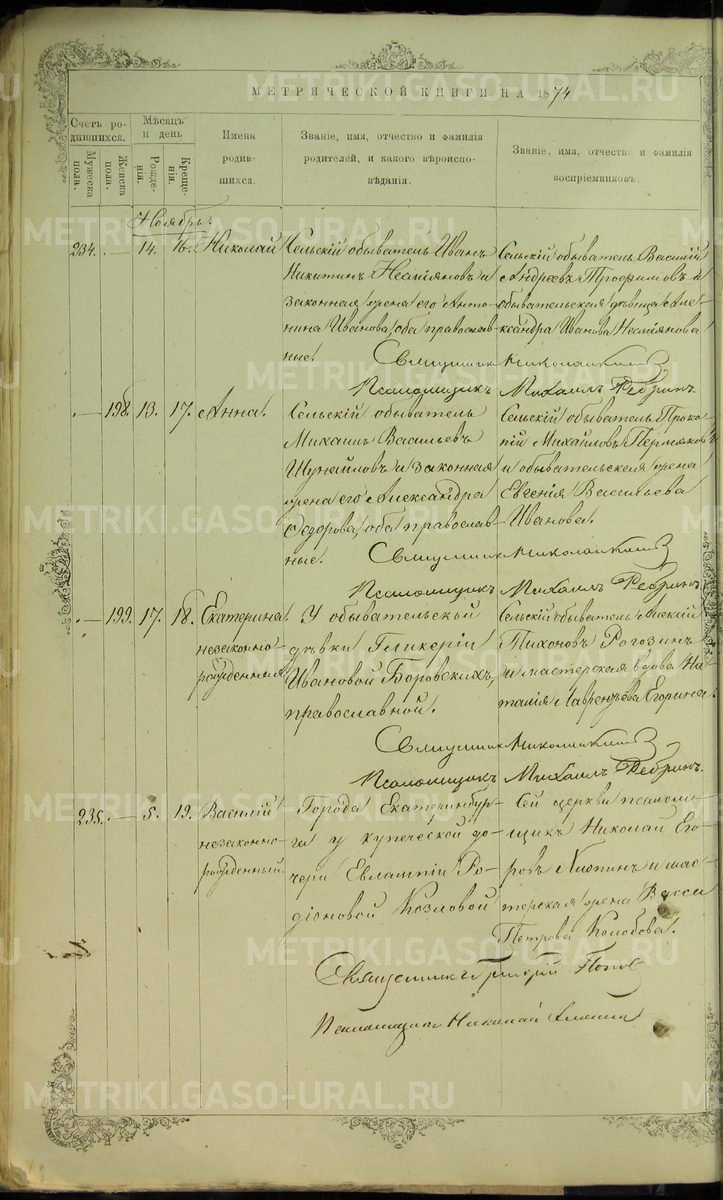 МЕТРИЧЕСКОЙ КНИГИ НА 1874
Счетъ родившихся.
Мужеска пола.
Женска пола.
Мѣсяцъ и день
Рожденія.
Крещенія.
Имена родившихся.
Званіе, имя, отчество и фамилія родителей, и какого вѣроисповѣданія.
Званіе, имя, отчество и фамилія воспріемниковъ.
Ноябрь
234. — 14. 16. Николай
Сельскій обыватель Иванъ
Никитинъ Несмѣяновъ и
законная жена его Анто-
нина Иванова, оба православ-
ные.
Сельскій обыватель Василій
Андреевъ Трофимовъ и
обывательская дѣвица Але-
ксандра Иванова Несмѣянова
Священникъ
Псаломщикъ Михаилъ Ребринъ
— 198. 13. 17. Анна.
Сельскій обыватель
Михаилъ Васильевъ
Шунайловъ и законная
жена его Александра
Ѳедорова, оба православ-
ные.
Сельскій обыватель Проко-
пій Михайловъ Пермяковъ
и обывательская жена
Евгенія Васильева
Иванова.
Священникъ
Псаломщикъ Михаилъ Ребринъ
— 199. 17. 18. Екатерина
незаконно-
рожденная
У обывательской
дѣвки Гликеріи
Ивановой Боровскихъ,
православной.
Сельскій обыватель Алексѣй
Тихоновъ Рогозинъ
и мастерская вдова На-
талія Лаврентьева Егорина.
Священникъ
Псаломщикъ Михаилъ Ребринъ.
235. — 5. 19. Василій
незаконно-
рожденный.
Города Екатеринбур-
га у купеческой до-
чери Евлампіи Ро-
діоновой Козловой
Сей церкви псалом-
щикъ Николай Его-
ровъ Хлопинъ и мас-
терская жена Васса
Петрова Колобова.
Священникъ Григорій Поповъ
Псаломщикъ Николай Хлопинъ
METRIKI.GASO-URAL.RU